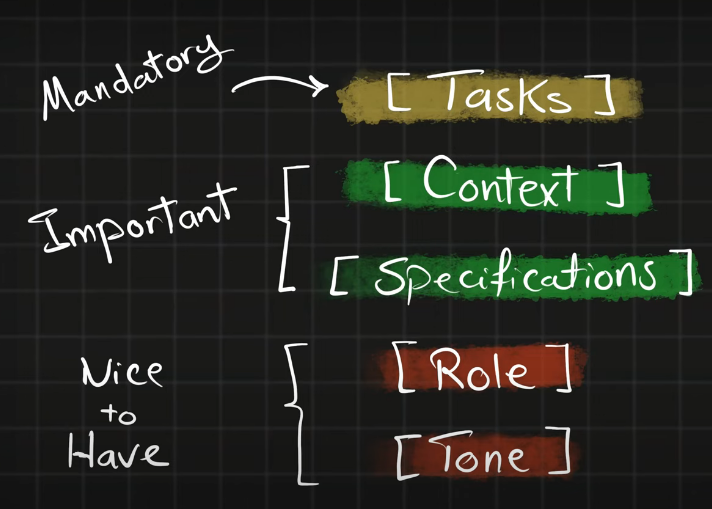 Mandatory
[ Tasks ]
Important
[ Context ]
[ Specifications ]
Nice
to
Have
[ Role ]
[ Tone ]